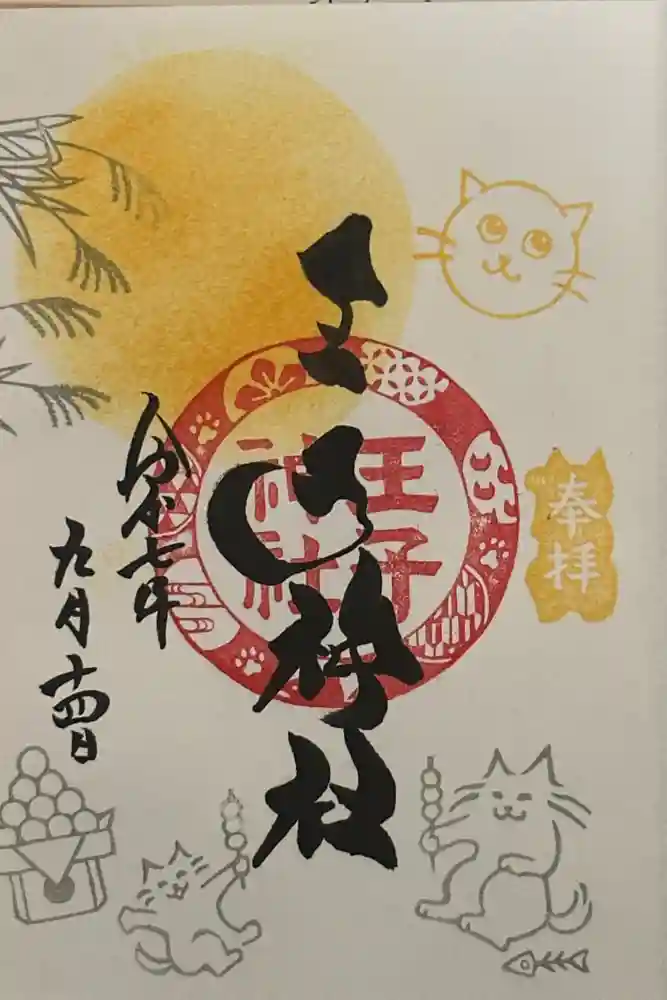 奉拝
王子神社
王子
神社
令和七年
九月十四日